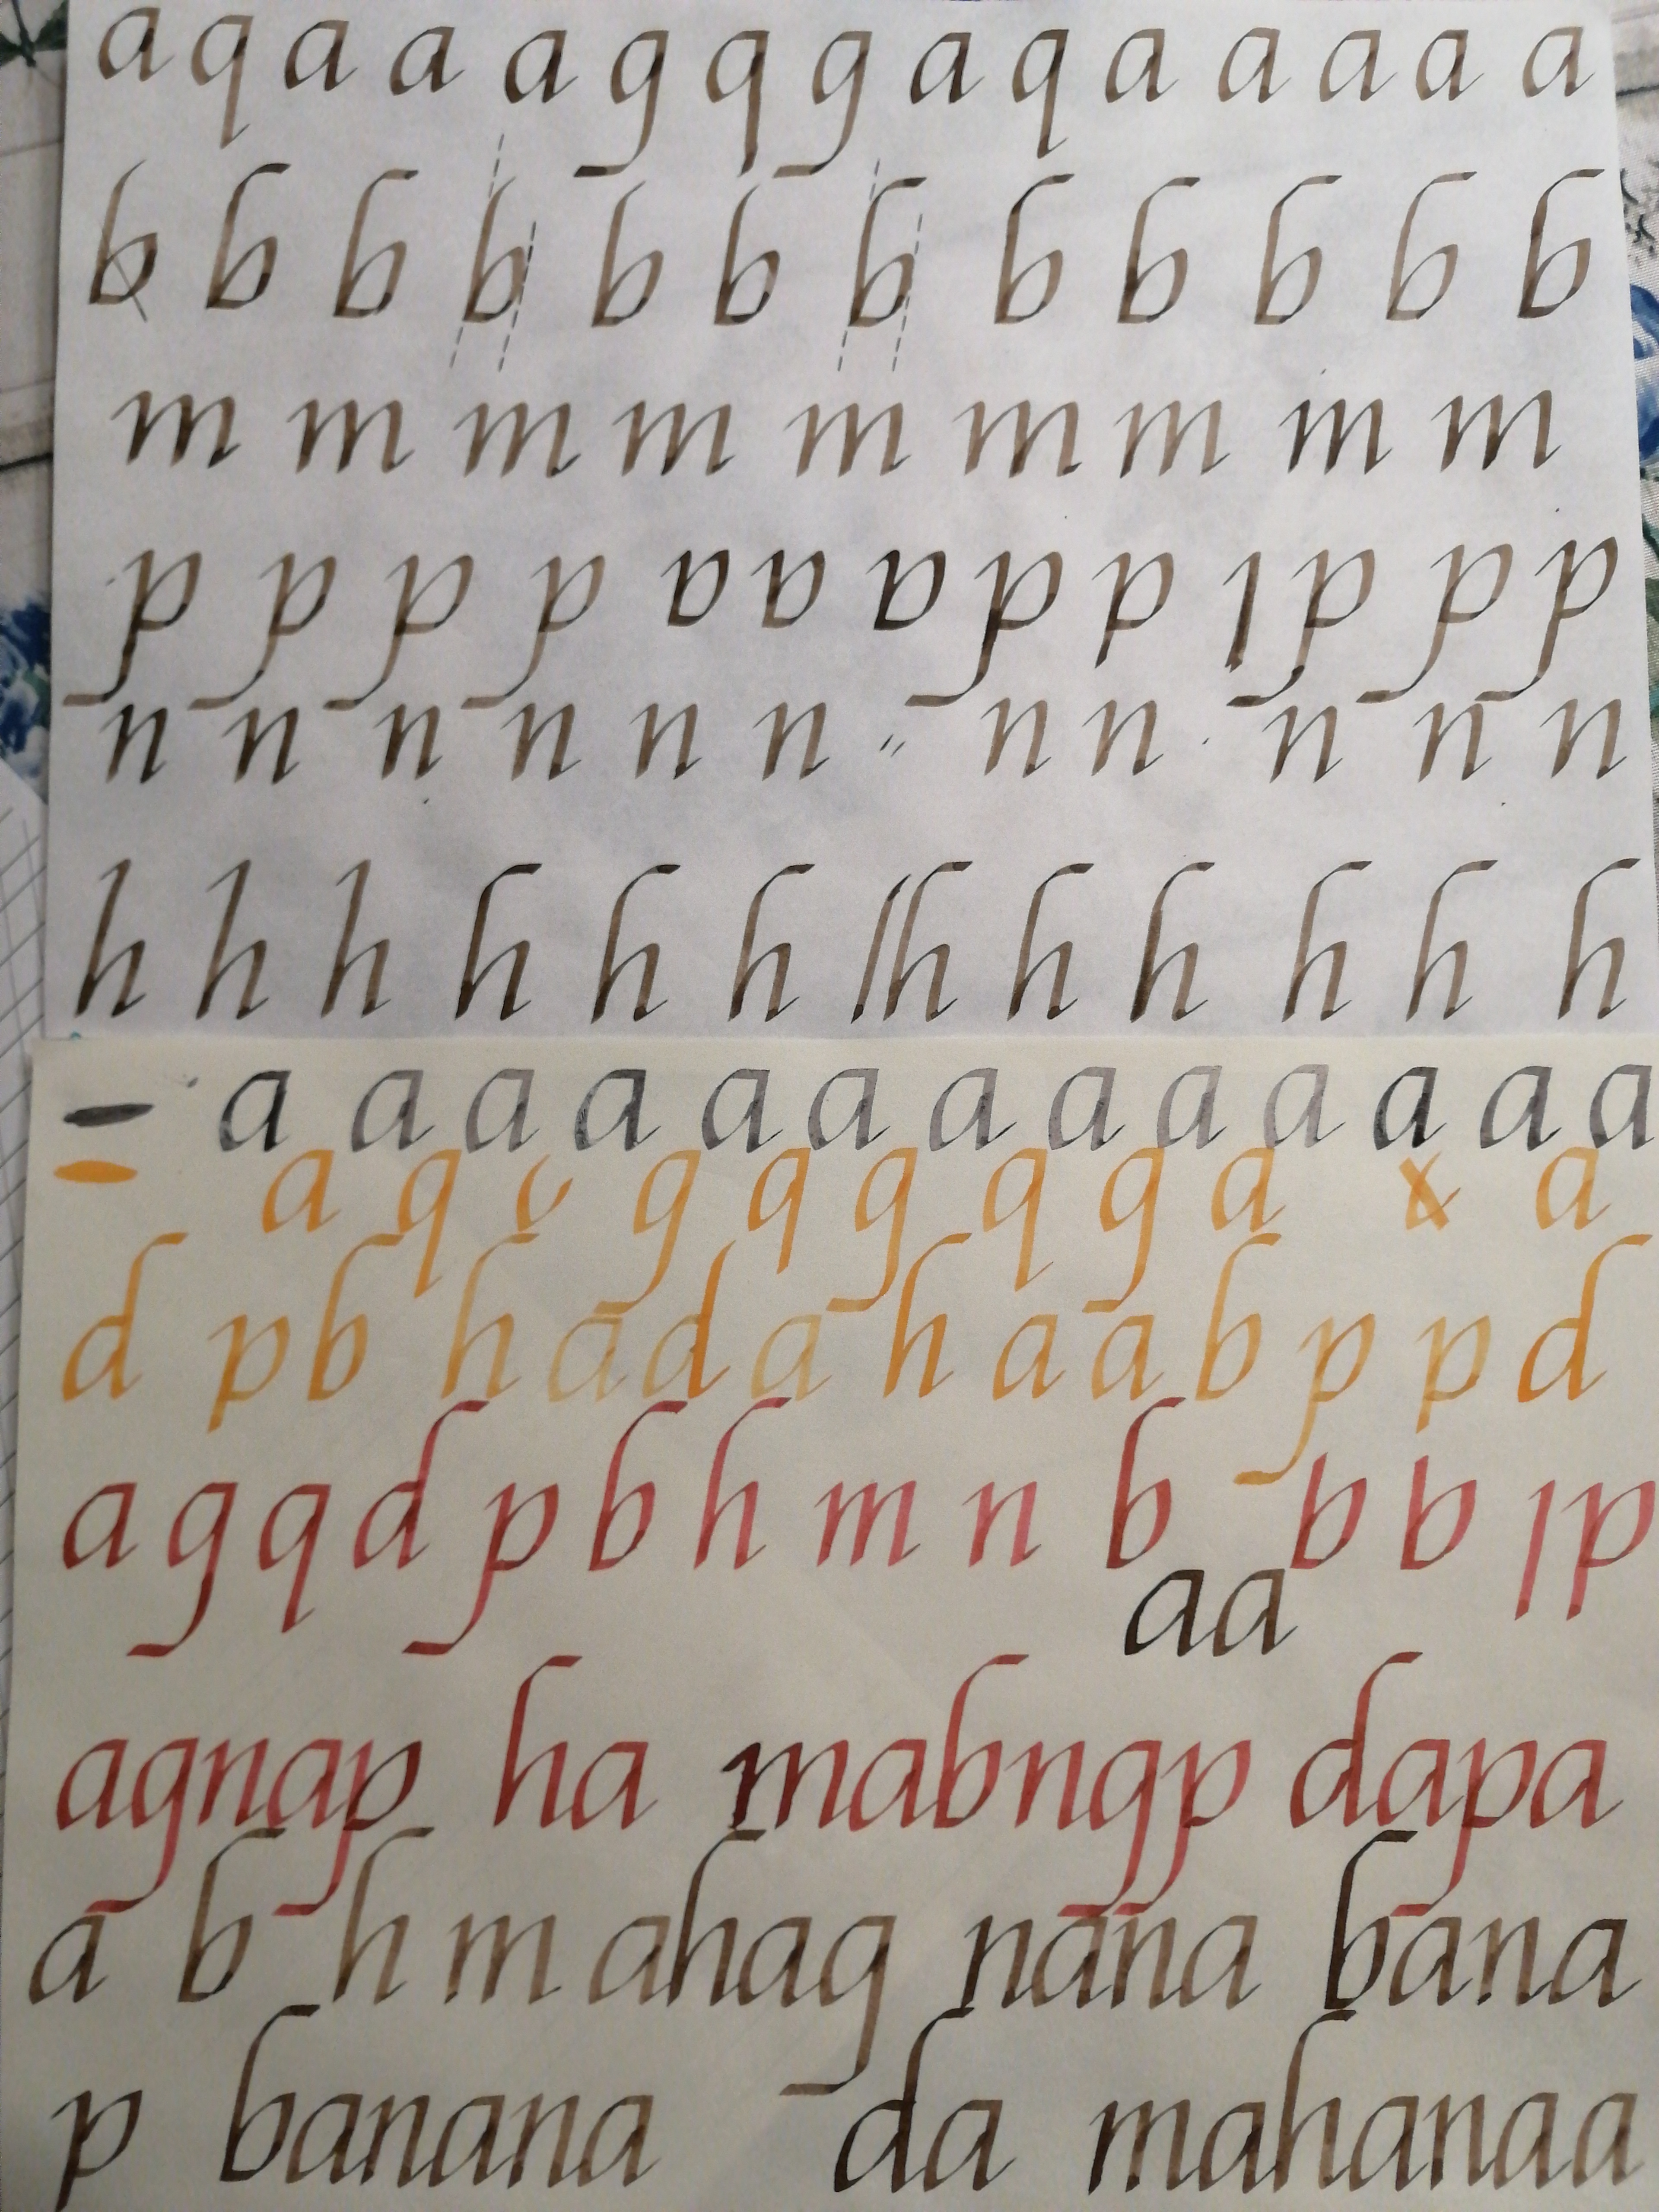 a q a a a g q g a q a a a a a
b b b b b b b b b b b b
m m m m m m m m m
p p p p p p p p
n n n n n n n n n n n
h h h h h h h h h h h h
a a a a a a a a a a a a a
a q g q g q g a a
d p b h a d a h a a b p p d
a g q d p b h m n b b b p
aa
agnap ha mabngp dapa
a b h m ahag nana bana
p banana da mahanaa